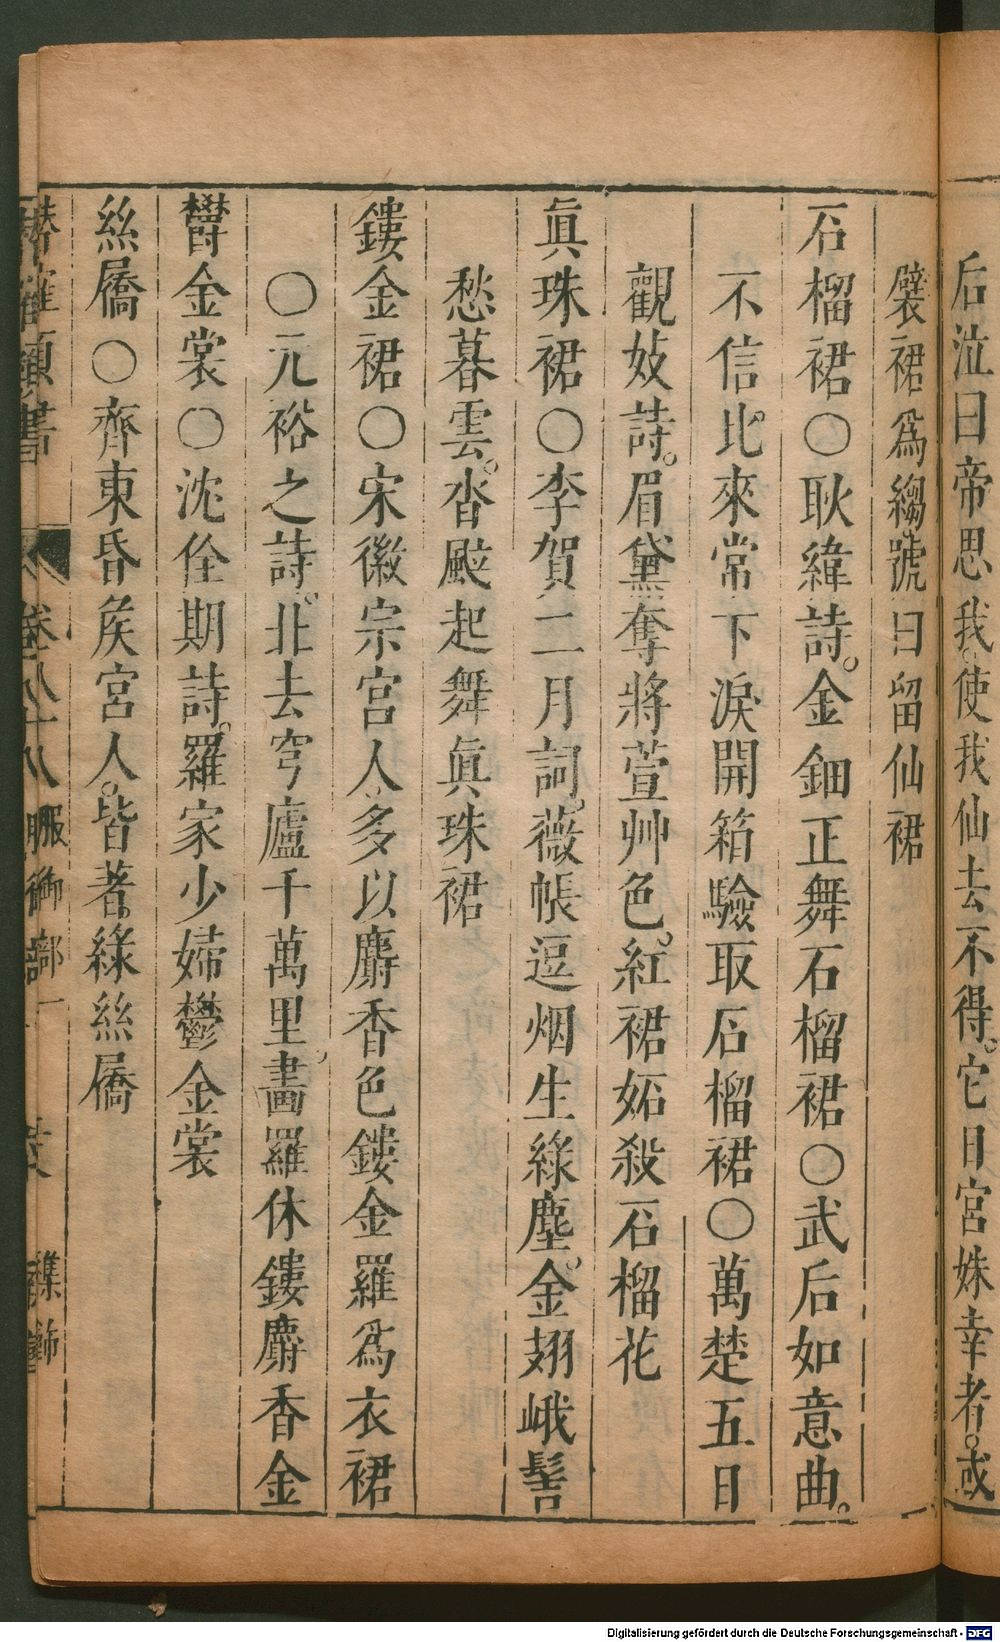 后泣曰帝思我。使我仙去不得。它日宮姝幸者。或
襞裙爲縐號曰留仙裙
石榴裙〇耿緯詩。金鈿正舞石榴裙〇武后如意曲。
不信比來常下淚開箱驗取石榴裙〇萬楚五日
觀妓詩。眉黛奪將萱艸色。紅裙妬殺石榴花
眞珠裙〇李賀二月詞。薇帳逗烟生綠塵。金翅峨髻
愁暮雲。沓颯起舞眞珠裙
鏤金裙〇宋徽宗宮人。多以麝香色鏤金羅爲衣裙
〇元裕之詩。北去穹廬千萬里。畵羅休鏤麝香金
欝金裳〇沈佺期詩。羅家少婦鬱金裳
絲屩〇齊東昏矦宮人。皆著綠絲屩
潛確類書 卷八十八 服御部一 衣飾
Digitalisierung gefördert durch die Deutsche Forschungsgemeinschaft - DFG